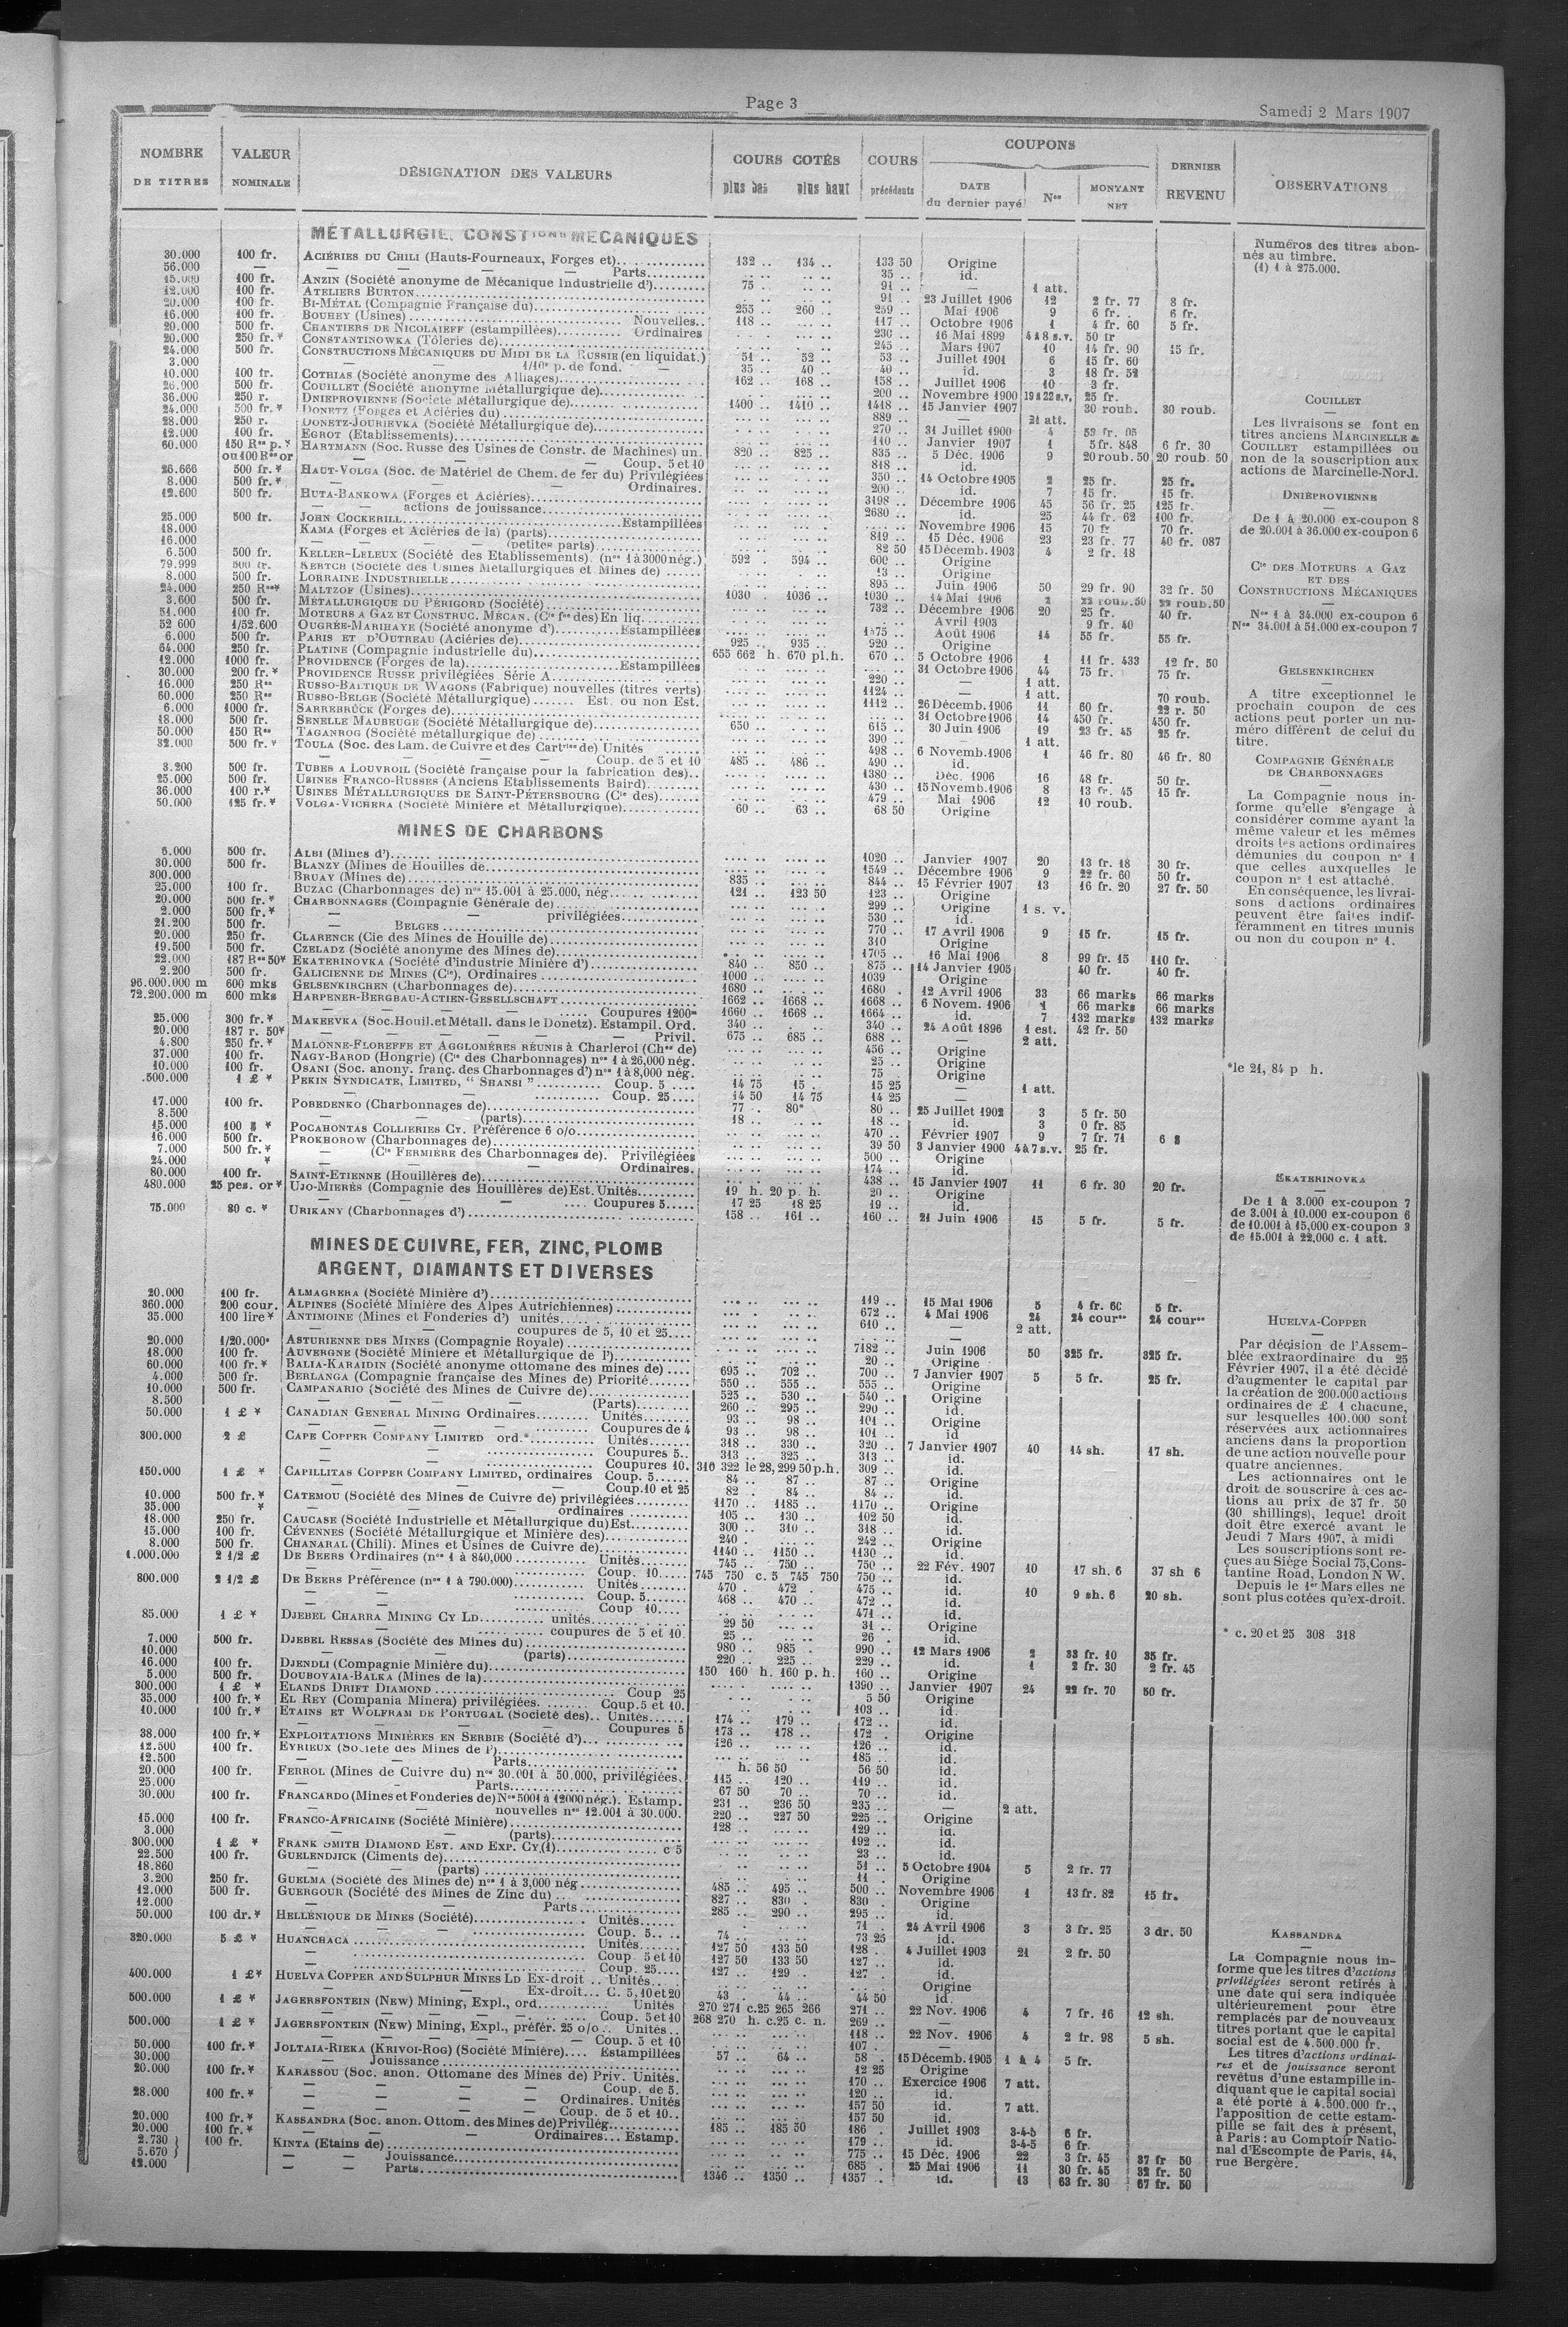 Page 3
Samedi 2 Mars 1907
NOMBRE DE TITRES
VALEUR NOMINALE
DÉSIGNATION DES VALEURS
COURS COTÉS
plus bas plus haut
COURS précédents
COUPONS
DATE du dernier payé
Nos
MONTANT NET
DERNIER REVENU
OBSERVATIONS
MÉTALLURGIE, CONSTIONS MÉCANIQUES
30.000 100 fr. ACIÉRIES DU CHILI (Hauts-Fourneaux, Forges et) 132 .. 134 .. 133 50 Origine
56.000 — — — — Parts 35 .. id.
15.000 100 fr. ANZIN (Société anonyme de Mécanique Industrielle d') 75 .. 91 .. — 1 att.
12.000 100 fr. ATELIERS BURTON 91 .. 23 Juillet 1906 12 2 fr. 77 8 fr.
20.000 100 fr. BI-MÉTAL (Compagnie Française du) 255 .. 260 .. 259 .. Mai 1906 9 6 fr. 6 fr.
16.000 100 fr. BOUHEY (Usines) Nouvelles 118 .. 117 .. Octobre 1906 1 4 fr. 60 5 fr.
20.000 500 fr. CHANTIERS DE NICOLAIEFF (estampillées) Ordinaires 230 .. 16 Mai 1899 4 à 8 s.v. 50 fr
20.000 250 fr.* CONSTANTINOWKA (Tôleries de) 245 .. Mars 1907 10 14 fr. 90 15 fr.
24.000 500 fr. CONSTRUCTIONS MÉCANIQUES DU MIDI DE LA RUSSIE (en liquidat.) 51 .. 52 .. 53 .. Juillet 1901 6 15 fr. 60
3.000 — 1/10e p. de fond. — 35 .. 40 .. 40 .. id. 3 18 fr. 52
10.000 100 fr. COTHIAS (Société anonyme des Alliages) 162 .. 168 .. 158 .. Juillet 1906 10 3 fr.
26.900 500 fr. COUILLET (Société anonyme Métallurgique de) 200 .. Novembre 1900 19 à 22 s.v. 25 fr.
36.000 250 r. DNIEPROVIENNE (Société Métallurgique de) 1400 .. 1410 .. 1418 .. 15 Janvier 1907 30 roub. 30 roub.
24.000 500 fr.* DONETZ (Forges et Aciéries du) 889 .. 21 att.
28.000 250 r. DONETZ-JOURIEVKA (Société Métallurgique de) 270 .. 31 Juillet 1900 4 53 fr. 05
12.000 100 fr. EGROT (Etablissements) 110 .. Janvier 1907 1 5 fr. 848 6 fr. 30
60.000 150 Res p.* HARTMANN (Soc. Russe des Usines de Constr. de Machines) un. 820 .. 825 .. 835 .. 5 Déc. 1906 9 20 roub. 50 20 roub. 50
ou 100 Res or — — — Coup. 5 et 10 848 .. id.
26.666 500 fr.* HAUT-VOLGA (Soc. de Matériel de Chem. de fer du) Privilégiées 350 .. 14 Octobre 1905 2 25 fr. 25 fr.
8.000 500 fr.* — — Ordinaires. 200 .. id. 7 15 fr. 15 fr.
12.600 500 fr. HUTA-BANKOWA (Forges et Aciéries) 3198 .. Décembre 1906 45 56 fr. 25 125 fr.
— — actions de jouissance 2680 .. id. 25 44 fr. 62 100 fr.
25.000 500 fr. JOHN COCKERILL Estampillées Novembre 1906 15 70 fr 70 fr.
18.000 KAMA (Forges et Aciéries de la) (parts) 819 .. 15 Déc. 1906 23 23 fr. 77 40 fr. 087
16.000 — — (petites parts) 82 50 15 Décemb. 1903 4 2 fr. 18
6.500 500 fr. KELLER-LELEUX (Société des Etablissements). (nos 1 à 3000 nég.) 592 . 594 .. 600 .. Origine
79.999 500 fr. KERTCH (Société des Usines Métallurgiques et Mines de) 13 .. Origine
8.000 500 fr. LORRAINE INDUSTRIELLE 895 .. Juin 1906 50 29 fr. 90 32 fr. 50
24.000 250 Res* MALTZOF (Usines) 1030 . 1036 .. 1030 .. 14 Mai 1906 2 22 roub. 50 22 roub. 50
3.600 500 fr. MÉTALLURGIQUE DU PÉRIGORD (Société) 732 .. Décembre 1906 20 25 fr. 40 fr.
51.000 100 fr. MOTEURS A GAZ ET CONSTRUC. MÉCAN. (Cie fse des) En liq. Avril 1903 9 fr. 40
52 600 1/52.600 OUGRÉE-MARIHAYE (Société anonyme d') Estampillées 1575 .. Août 1906 14 55 fr. 55 fr.
6.000 500 fr. PARIS ET D'OUTREAU (Aciéries de) 925 .. 935 .. 920 .. Origine
64.000 250 fr. PLATINE (Compagnie industrielle du) 655 662 h. 670 pl.h. 670 .. 5 Octobre 1906 1 11 fr. 433 12 fr. 50
12.000 1000 fr. PROVIDENCE (Forges de la) Estampillées 31 Octobre 1906 44 75 fr. 75 fr.
30.000 200 fr.* PROVIDENCE RUSSE privilégiées Série A 220 .. — 1 att.
16.000 250 Res RUSSO-BALTIQUE DE WAGONS (Fabrique) nouvelles (titres verts) 1124 .. — 1 att. 70 roub.
60.000 250 Res RUSSO-BELGE (Société Métallurgique) Est. ou non Est. 1112 .. 26 Décemb. 1906 11 60 fr. 22 r. 50
6.000 1000 fr. SARREBRÜCK (Forges de) 31 Octobre 1906 14 450 fr. 450 fr.
18.000 500 fr. SENELLE MAUBEUGE (Société Métallurgique de) 650 .. 615 .. 30 Juin 1906 19 23 fr. 45 25 fr.
50.000 150 Res TAGANROG (Société métallurgique de) 390 .. 1 att.
32.000 500 fr.* TOULA (Soc. des Lam. de Cuivre et des Cartries de) Unités 498 .. 6 Novemb. 1906 1 46 fr. 80 46 fr. 80
— — — Coup. de 5 et 10 485 .. 486 .. 490 .. id.
3.200 500 fr. TUBES A LOUVROIL (Société française pour la fabrication des) 1380 .. Déc. 1906 16 48 fr. 50 fr.
25.000 500 fr. USINES FRANCO-RUSSES (Anciens Etablissements Baird) 430 .. 15 Novemb. 1906 8 13 fr. 45 15 fr.
36.000 100 r.* USINES MÉTALLURGIQUES DE SAINT-PÉTERSBOURG (Cie des) 479 .. Mai 1906 12 10 roub.
50.000 125 fr.* VOLGA-VICHERA (Société Minière et Métallurgique) 60 .. 63 .. 68 50 Origine
MINES DE CHARBONS
6.000 500 fr. ALBI (Mines d') 1020 .. Janvier 1907 20 13 fr. 18 30 fr.
30.000 500 fr. BLANZY (Mines de Houilles de 1549 .. Décembre 1906 9 22 fr. 60 50 fr.
300.000 BRUAY (Mines de) 835 .. 844 .. 15 Février 1907 13 16 fr. 20 27 fr. 50
25.000 100 fr. BUZAC (Charbonnages de) nos 15.001 à 25.000, nég. 121 .. 123 50 123 .. Origine
20.000 500 fr.* CHARBONNAGES (Compagnie Générale de) 299 .. Origine 1 s. v.
2.000 500 fr.* — — privilégiées 530 .. id.
21.200 500 fr. — BELGES 770 .. 17 Avril 1906 9 15 fr. 15 fr.
20.000 250 fr. CLARENCE (Cie des Mines de Houille de) 310 Origine
19.500 500 fr. CZELADZ (Société anonyme des Mines de) 1705 .. 16 Mai 1906 8 99 fr. 15 110 fr.
22.000 187 Res 50* EKATERINOVKA (Société d'industrie Minière d') 840 .. 850 .. 875 .. 14 Janvier 1905 40 fr. 40 fr.
2.200 500 fr. GALICIENNE DE MINES (Cie), Ordinaires 1000 .. 1039 Origine
96.000.000 m 600 mks GELSENKIRCHEN (Charbonnages de) 1680 .. 1680 . 12 Avril 1906 33 66 marks 66 marks
72.200.000 m 600 mks HARPENER-BERGBAU-ACTIEN-GESELLSCHAFT 1662 .. 1668 .. 1668 .. 6 Novem. 1906 1 66 marks 66 marks
— — — Coupures 1200m 1660 .. 1668 .. 1664 .. id. 7 132 marks 132 marks
25.000 300 fr.* MAKEEVKA (Soc. Houil. et Métall. dans le Donetz). Estampil. Ord. 340 .. 340 .. 24 Août 1896 1 est. 42 fr. 50
20.000 187 r. 50* — — — Privil. 675 .. 685 .. 688 .. — 2 att.
4.800 250 fr.* MALONNE-FLOREFFE ET AGGLOMÉRES RÉUNIS à Charleroi (Chges de) 456 .. Origine
37.000 100 fr. NAGY-BAROD (Hongrie) (Cie des Charbonnages) nos 1 à 26,000 nég. 25 .. Origine
10.000 100 fr. OSANI (Soc. anony. franç. des Charbonnages d') nos 1 à 8,000 nég. 75 Origine
.500.000 1 £ * PEKIN SYNDICATE, LIMITED, “ SHANSI ” Coup. 5 14 75 15 . 15 25 — 1 att.
Coup. 25 14 50 14 75 14 25
17.000 100 fr. POBEDENKO (Charbonnages de) 77 . 80* 80 .. 25 Juillet 1902 3 5 fr. 50
8.500 — — (parts) 18 .. 18 .. id. 3 0 fr. 85
15.000 100 $ * POCAHONTAS COLLIERIES CY. Préférence 6 o/o 470 .. Février 1907 9 7 fr. 71 6 $
16.000 500 fr. PROKHOROW (Charbonnages de) 39 50 3 Janvier 1900 4 à 7 s.v. 25 fr.
7.000 500 fr.* — (Cie FERMIÈRE des Charbonnages de). Privilégiées 500 .. Origine
24.000 * — — — Ordinaires. 174 .. id.
80.000 100 fr. SAINT-ETIENNE (Houillères de) 438 .. 15 Janvier 1907 11 6 fr. 30 20 fr.
480.000 25 pes. or * UJO-MIERÈS (Compagnie des Houillères de) Est. Unités 19 h. 20 p. h. 20 .. Origine
— — — Coupures 5 17 25 18 25 19 .. id.
75.000 80 c. * URIKANY (Charbonnages d') 158 .. 161 .. 160 .. 21 Juin 1906 15 5 fr. 5 fr.
MINES DE CUIVRE, FER, ZINC, PLOMB
ARGENT, DIAMANTS ET DIVERSES
20.000 100 fr. ALMAGRERA (Société Minière d') 119 .. 15 Mai 1906 5 4 fr. 60 5 fr.
360.000 200 cour. ALPINES (Société Minière des Alpes Autrichiennes) 672 .. 4 Mai 1906 24 24 coures 24 coures
35.000 100 lire* ANTIMOINE (Mines et Fonderies d') unités 610 .. — 2 att.
— — coupures de 5, 10 et 25
20.000 1/20.000e ASTURIENNE DES MINES (Compagnie Royale) 7182 .. Juin 1906 50 325 fr. 325 fr.
18.000 100 fr. AUVERGNE (Société Minière et Métallurgique de l') 20 .. Origine
60.000 100 fr.* BALIA-KARAIDIN (Société anonyme ottomane des mines de) 695 .. 702 .. 700 .. 7 Janvier 1907 5 5 fr. 25 fr.
4.000 500 fr. BERLANGA (Compagnie française des Mines de) Priorité 550 .. 555 .. 555 .. Origine
10.000 500 fr. CAMPANARIO (Société des Mines de Cuivre de) 525 .. 530 .. 540 .. Origine
8.500 — — — (Parts) 260 .. 295 .. 290 .. id.
50.000 1 £ * CANADIAN GENERAL MINING Ordinaires Unités 93 .. 98 .. 101 .. Origine
— — — Coupures de 4 93 .. 98 .. 101 .. id
300.000 2 £ CAPE COPPER COMPANY LIMITED ord.* Unités 318 .. 330 .. 320 .. 7 Janvier 1907 40 14 sh. 17 sh.
— — Coupures 5 313 .. 325 .. 313 .. id.
— — Coupures 10. 310 322 le 28, 299 50 p.h. 309 .. id.
150.000 1 £ * CAPILLITAS COPPER COMPANY LIMITED, ordinaires Coup. 5 84 .. 87 .. 87 .. Origine
— — — Coup. 10 et 25 82 . 84 .. 84 .. id.
10.000 500 fr.* CATEMOU (Société des Mines de Cuivre de) privilégiées 1170 .. 1185 .. 1170 .. Origine
35.000 * — — ordinaires 105 .. 130 .. 102 50 id.
18.000 250 fr. CAUCASE (Société Industrielle et Métallurgique du) Est. 300 .. 310 .. 318 .. id.
15.000 100 fr. CÉVENNES (Société Métallurgique et Minière des) 240 . 242 .. Origine
8.000 500 fr. CHANARAL (Chili). Mines et Usines de Cuivre de) 1140 .. 1150 .. 1130 .. id.
1.000.000 2 1/2 £ DE BEERS Ordinaires (nos 1 à 840,000 Unités 745 .. 750 .. 750 .. 22 Fév. 1907 10 17 sh. 6 37 sh 6
— Coup. 10 745 750 c. 5 745 750 750 .. id.
800.000 2 1/2 £ DE BEERS Préférence (nos 1 à 790.000) Unités 470 . 472 . 475 .. id. 10 9 sh. 6 20 sh.
— Coup. 5 468 .. 470 .. 472 .. id.
— Coup 10 471 .. id.
85.000 1 £ * DJEBEL CHARRA MINING CY LD unités 29 50 31 .. Origine
— coupures de 5 et 10. 25 .. 26 . id.
7.000 500 fr. DJEBEL RESSAS (Société des Mines du) 980 .. 985 . 990 .. 12 Mars 1906 2 33 fr. 10 35 fr.
10.000 — — (parts) 220 .. 225 .. 229 .. id. 1 2 fr. 30 2 fr. 45
16.000 100 fr. DJENDLI (Compagnie Minière du) 150 160 h. 160 p. h. 160 .. Origine
5.000 500 fr. DOUBOVAIA-BALKA (Mines de la) 1390 .. Janvier 1907 24 22 fr. 70 50 fr.
300.000 1 £ * ELANDS DRIFT DIAMOND Coup 25 5 50 Origine
35.000 100 fr.* EL REY (Compania Minera) privilégiées. Coup. 5 et 10. 103 .. id.
10.000 100 fr.* ETAINS ET WOLFRAM DE PORTUGAL (Société des) Unités 174 .. 179 .. 172 .. id.
— — — Coupures 5 173 .. 178 .. 172 . Origine
38.000 100 fr.* EXPLOITATIONS MINIÈRES EN SERBIE (Société d') 126 .. 126 .. id.
12.500 100 fr. EYRIEUX (Société des Mines de l') 185 .. id.
12.500 — — Parts
20.000 100 fr. FERROL (Mines de Cuivre du) nos 30.001 à 50.000, privilégiées. h. 56 50 56 50 id.
25.000 — - Parts 115 .. 120 .. 119 .. id.
30.000 100 fr. FRANCARDO (Mines et Fonderies de) Nos 5001 à 12000 nég.). Estamp. 67 50 70 .. 70 .. id.
— — nouvelles nos 12.001 à 30.000. 231 .. 236 50 235 .. — 2 att.
15.000 100 fr. FRANCO-AFRICAINE (Société Minière) 220 .. 227 50 225 .. Origine
3.000 — — (parts) 128 .. 129 .. id.
300.000 1 £ * FRANK SMITH DIAMOND EST. AND EXP. CY.(1) c 5 192 .. id.
22.500 100 fr. GUELENDJICK (Ciments de) 23 .. id.
18.860 — — (parts) 51 .. 5 Octobre 1904 5 2 fr. 77
3.200 250 fr. GUELMA (Société des Mines de) nos 1 à 3,000 nég 11 . Origine
12.000 500 fr. GUERGOUR (Société des Mines de Zinc du) 485 .. 495 .. 500 .. Novembre 1906 1 13 fr. 82 15 fr.
12.000 — — Parts 827 .. 830 . 830 . Origine
50.000 100 dr.* HELLÉNIQUE DE MINES (Société) Unités 285 .. 290 .. 295 .. id.
— — — Coup. 5 71 . 24 Avril 1906 3 3 fr. 25 3 dr. 50
320.000 5 £ * HUANCHACA Unités 74 .. 73 25 id.
— Coup. 5 et 10 127 50 133 50 128 . 4 Juillet 1903 21 2 fr. 50
— Coup. 25 127 50 133 50 127 .. id.
400.000 1 £* HUELVA COPPER AND SULPHUR MINES LD Ex-droit .. Unités 127 .. 129 . 127 . id.
— — Ex-droit... C. 5, 10 et 20 Origine
500.000 1 £ * JAGERSFONTEIN (NEW) Mining, Expl., ord Unités 43 . 44 .. 44 50 id.
— — — Coup. 5 et 10 270 271 c.25 265 266 271 .. 22 Nov. 1906 4 7 fr. 16 12 sh.
500.000 1 £ * JAGERSFONTEIN (NEW) Mining, Expl., préfér. 25 o/o Unités 268 270 h. c.25 c. n. 269 .. —
— — — Coup. 5 et 10 118 .. 22 Nov. 1906 4 2 fr. 98 5 sh.
50.000 100 fr.* JOLTAIA-RIEKA (KRIVOI-ROG) (Société Minière) Estampillées 107 . —
30.000 — Jouissance 57 .. 64 .. 58 . 15 Décemb. 1905 1 à 4 5 fr.
20.000 100 fr.* KARASSOU (Soc. anon. Ottomane des Mines de) Priv. Unités. 12 25 Origine
— — — Coup. de 5. 170 .. Exercice 1906 7 att.
28.000 100 fr.* — — — Ordinaires. Unités 120 .. id.
— — — Coup. de 5 et 10 157 50 id. 7 att.
20.000 100 fr.* KASSANDRA (Soc. anon. Ottom. des Mines de) Privilég. 157 50 id.
20.000 100 fr.* — — Ordinaires... Estamp. 185 .. 185 50 186 . Juillet 1903 3-4-5 6 fr.
2.730 } 100 fr. KINTA (Etains de) 179 .. id. 3-4-5 6 fr.
5.670 } — — Jouissance 775 .. 15 Déc. 1906 22 3 fr. 45 37 fr 50
12.000 — — Parts 685 . 25 Mai 1906 11 30 fr. 45 32 fr. 50
1346 .. 1350 .. 1357 .. id. 13 63 fr. 30 67 fr. 50
Numéros des titres abon-
nés au timbre.
(1) 1 à 275.000.
COUILLET
Les livraisons se font en
titres anciens MARCINELLE &
COUILLET estampillées ou
non de la souscription aux
actions de Marcinelle-Nord.
DNIÉPROVIENNE
De 1 à 20.000 ex-coupon 8
de 20.001 à 36.000 ex-coupon 6
Cie DES MOTEURS A GAZ
ET DES
CONSTRUCTIONS MÉCANIQUES
Nos 1 à 34.000 ex-coupon 6
Nos 34.001 à 51.000 ex-coupon 7
GELSENKIRCHEN
A titre exceptionnel le
prochain coupon de ces
actions peut porter un nu-
méro différent de celui du
titre.
COMPAGNIE GÉNÉRALE
DE CHARBONNAGES
La Compagnie nous in-
forme qu'elle s'engage à
considérer comme ayant la
même valeur et les mêmes
droits les actions ordinaires
démunies du coupon n° 1
que celles auxquelles le
coupon n° 1 est attaché.
En conséquence, les livrai-
sons d'actions ordinaires
peuvent être faites indif-
féramment en titres munis
ou non du coupon n° 1.
*le 21, 84 p h.
EKATERINOVKA
De 1 à 3.000 ex-coupon 7
de 3.001 à 10.000 ex-coupon 6
de 10.001 à 15,000 ex-coupon 3
de 15.001 à 22,000 c. 1 att.
HUELVA-COPPER
Par décision de l'Assem-
blée extraordinaire du 25
Février 1907, il a été décidé
d'augmenter le capital par
la création de 200.000 actions
ordinaires de £ 1 chacune,
sur lesquelles 100.000 sont
réservées aux actionnaires
anciens dans la proportion
de une action nouvelle pour
quatre anciennes.
Les actionnaires ont le
droit de souscrire à ces ac-
tions au prix de 37 fr. 50
(30 shillings), lequel droit
doit être exercé avant le
Jeudi 7 Mars 1907, à midi
Les souscriptions sont re-
çues au Siège Social 75, Cons-
tantine Road, London N W.
Depuis le 1er Mars elles ne
sont plus cotées qu'ex-droit.
* c. 20 et 25 308 318
KASSANDRA
La Compagnie nous in-
forme que les titres d'actions
privilégiées seront retirés à
une date qui sera indiquée
ultérieurement pour être
remplacés par de nouveaux
titres portant que le capital
social est de 4.500.000 fr.
Les titres d'actions ordinai-
res et de jouissance seront
revêtus d'une estampille in-
diquant que le capital social
a été porté à 4.500.000 fr.,
l'apposition de cette estam-
pille se fait dès à présent,
à Paris : au Comptoir Natio-
nal d'Escompte de Paris, 14,
rue Bergère.